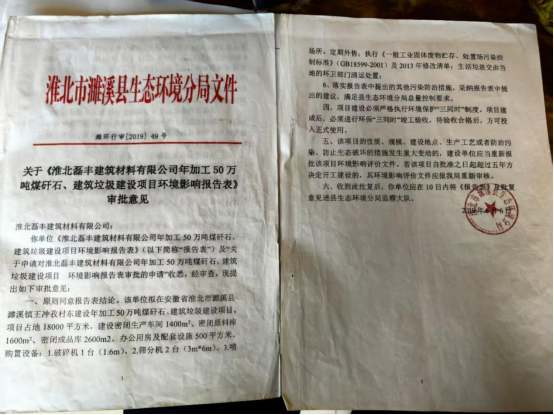 淮北市濉溪县生态环境分局文件
濉环行审[2019] 49 号
关于《淮北磊丰建筑材料有限公司年加工 50 万
吨煤矸石、建筑垃圾建设项目环境影响报告表》
审批意见
淮北磊丰建筑材料有限公司：
你单位《淮北磊丰建筑材料有限公司年加工 50 万吨煤矸石、
建筑垃圾建设项目环境影响报告表》（以下简称“报告表”）及“关
于申请对淮北磊丰建筑材料有限公司年加工 50 万吨煤矸石、建筑
垃圾建设项目 环境影响报告表审批的申请”收悉，经审查，现提
出如下审批意见：
一、原则同意报告表结论，该单位拟在安徽省淮北市濉溪县
濉溪镇王冲孜村东建设年加工50万吨煤矸石、建筑垃圾建设项目，
项目占地 18000 平方米，建设密闭生产车间 1400m²、密闭原料库
1600m²、密闭成品库 2600m²、办公用房及配套设施 500 平方米，
购置设备：1.破碎机 1 台（1.6m）、2.筛分机 2 台（3m*6m）、3.喷
1
场所，定期外售；执行《一般工业固体废物贮存、处置场污染控
制标准》（GB18599-2001）及 2013 年修改清单；生活垃圾交由当
地的环卫部门清运处置；
6、落实报告表中提出的其他污染防治措施，采纳报告表中提
出的建议，满足县生态环境分局总量控制要求。
四、项目建设必须严格执行环境保护“三同时”制度。项目建
成后，必须进行环保“三同时”竣工验收，待验收合格后，方可投
入正式使用。
五、该项目的性质、规模、建设地点、生产工艺或者防治污
染、防止生态破坏的措施发生重大变动的，建设单位应当重新报
批该项目环境影响评价文件。若该项目自批准之日起超过五年方
决定开工建设的，其环境影响评价文件应报我局重新审核。
六、收到此批复后，你单位应在 10 日内将《报告表》及批复
意见送县生态环境分局监察大队。